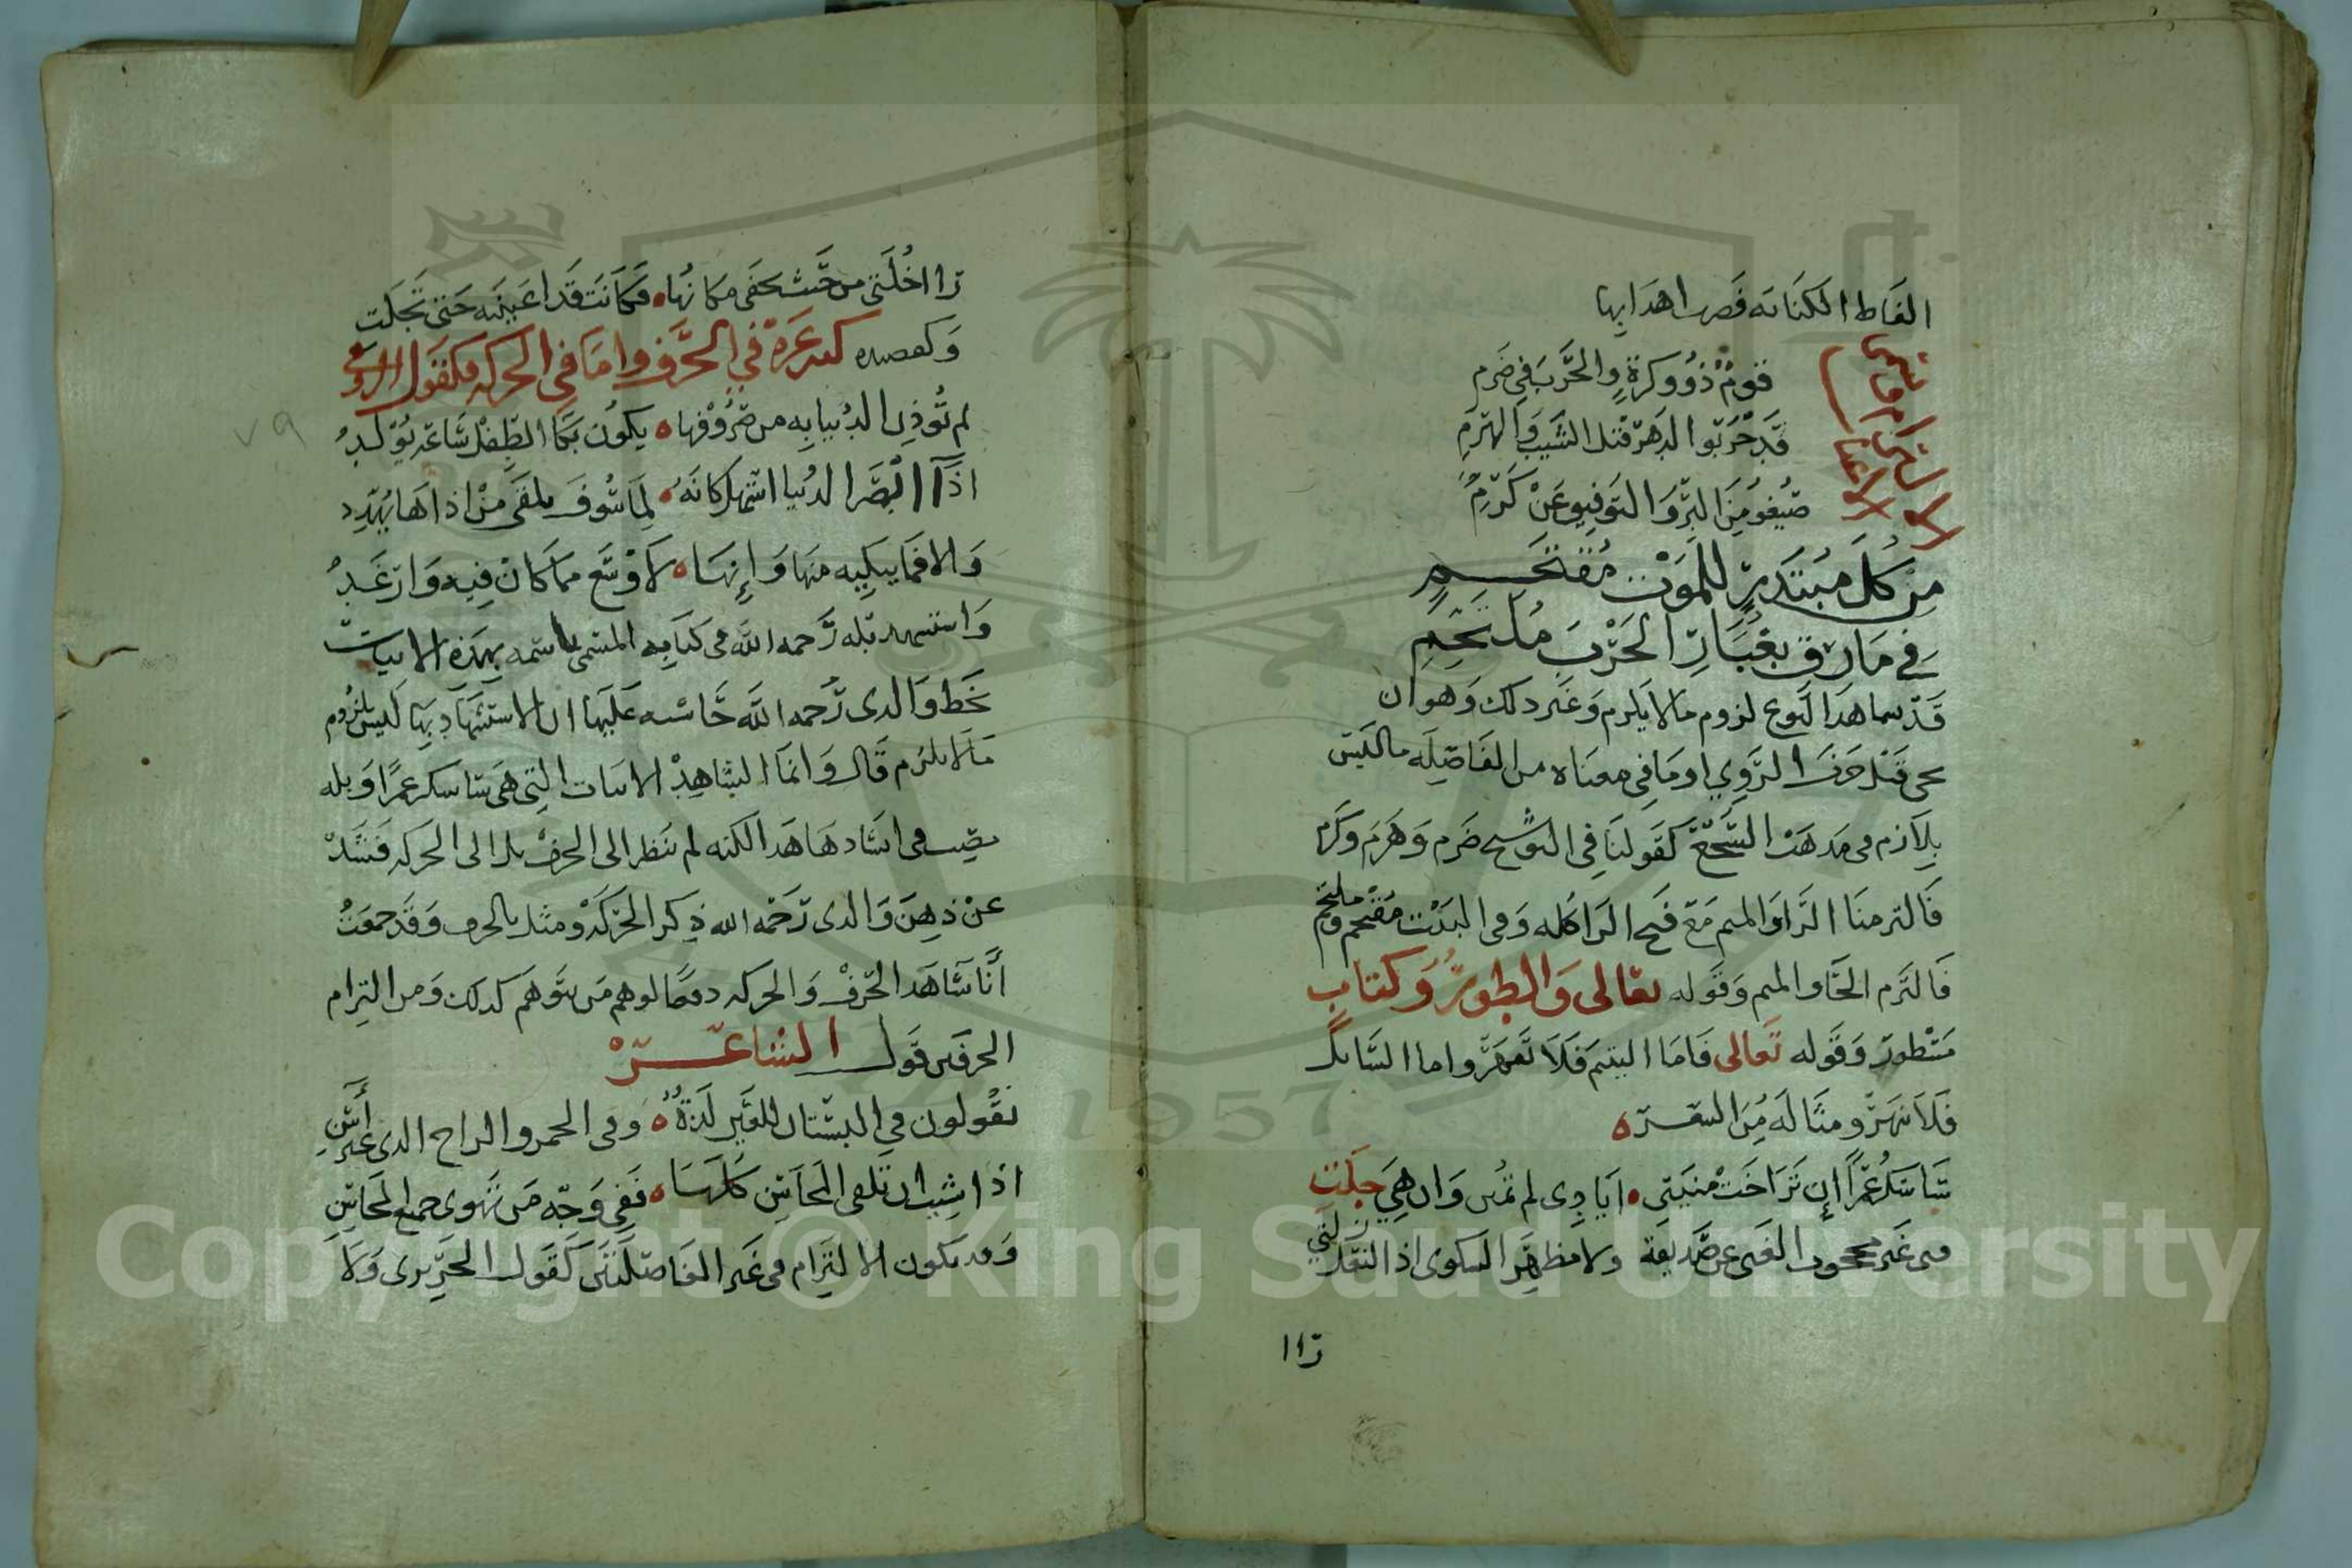 الفاظ الكناية فصر اهدابها
الالتزام قاض
الاعنا
قومٌ ذوو كرةٍ والحرب في ضرم
قد جرّبوا الدهر قبل الشيب والهرم
صيغو من البرّ والتوفيق عن كرمٍ
من كل مبتدرٍ للموت مقتحم
في مارق بغبار الحرب ملتحم
قد سما هذا النوع لزوم مالا يلزم وغير ذلك وهو ان
يجي قبل حرف الروي او ما في معناه من الفاصله ما ليس
بلازم في مذهب السجع كقولنا في التوشيح ضرم وهرم وكرم
فالتزمنا الرا والميم مع فتح الرا كله وفي البيت مقتحم وملتحم
فالتزم الحا والميم وقوله تعالى والطور وكتاب
مسطور وقوله تعالى فاما اليتيم فلا تقهر واما السايل
فلا تنهر ومثاله من الشعر ه
سأشكر عمرا إن تراخت منيتي ٠ ايادي لم تمنن وان هي جلت
فتى غير محجوب الغنى عن صديقه ولا مظهر الشكوى اذا النعل زلت
راا
راا خلتي من حيث يخفى مكانها ٠ فكانت قذا عينيه حتى تجلت
وكقصيده كثير عزة في الحرف واما في الحركه فكقول ابن الرومي
لم تُوذِن الدنيا به من صروفها ه يكون بكا الطفل ساعة يولد
اذا ابصر الدنيا استهل كانه ه لما سوف يلقى من اذاها يهدد
والا فما يبكيه منها وإنها ه لاوسع مما كان فيه وارغد
واستشهد قبله رحمه الله في كتابه المسمى باسمه بهذه الابيات
بخط والدي رحمه الله حاشيه عليها ان الاستشهاد بها ليس بلزوم
مالا يلزم قال وانما الشاهد الابيات التي هي سأشكر عمرًا وقبله
يصيب في انشادها هذا لكنه لم ينظر الى الحرف بل الى الحركه فشذ
عن ذهن والدي رحمه الله ذكر الحركة ومثل بالحرف وقد جمعتُ
أنا شاهد الحرف والحركه دفعًا لوهم من يتوهم كذلك ومن التزام
الحرفين قول الشاعر
يقولون في البستان للعين لذةٌ ه وفي الخمر والراح الذي غير آسن
اذا شيت ان تلقى المحاسن كلها ه ففي وجه من تهوى جميع المحاسن
وقد يكون الالتزام في غير الفاصلتين كقول الحريري ولا
٧٩